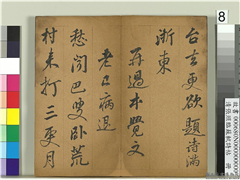 8
台去更欲題詩滿
浙東
再過本覺文
老已病退
愁聞巴叟臥荒
村來打三更月